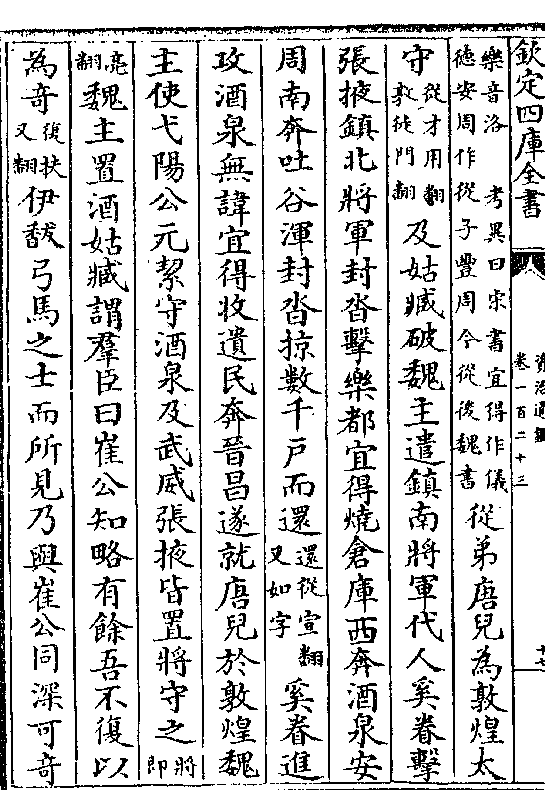 欽定四庫全書
資治通鑑
卷一百二十三
十七
樂音洛　考異曰宋書宜得作儀
德安周作從子豐周今從後魏書
從弟唐兒為敦煌太
守從才用翻
敦徒門翻
及姑臧破魏主遣鎮南將軍代人奚眷擊
張掖鎮北將軍封沓擊樂都宜得燒倉庫西奔酒泉安
周南奔吐谷渾封沓掠數千戶而還還從宣翻
又如字
奚眷進
攻酒泉無諱宜得收遺民奔晉昌遂就唐兒於敦煌魏
主使弋陽公元絜守酒泉及武威張掖皆置將守之將
即
亮
翻
魏主置酒姑臧謂羣臣曰崔公知略有餘吾不復以
為奇復扶
又翻
伊馛弓馬之士而所見乃與崔公同深可奇